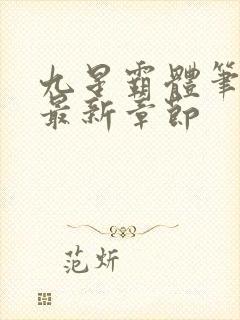 九星霸體筆
最新章節
范炘